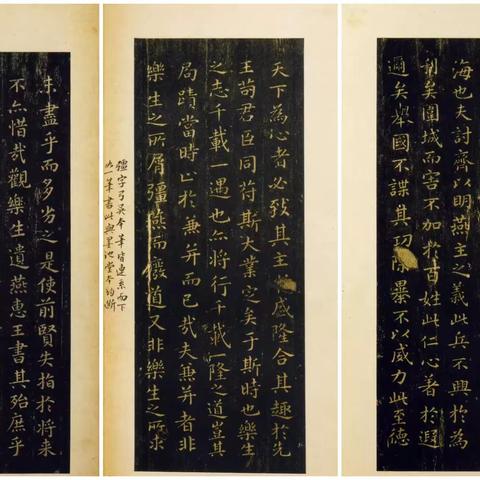 未盡乎而多劣之是使前賢失指於將来
不亦惜哉觀樂生遺燕惠王書其殆庶乎
天下為心者必致其主盛隆合其趣於先
王苟君臣同符斯大業定矣于斯時也樂生
之志千載一遇也亦將行千載一隆之道豈其
局蹟當時止於兼并而已哉夫兼并者非
樂生之所屑彊燕而廢道又非樂生之所求
彊字弓吳本筆皆連系而下
一筆書此與墨池堂本均斷
海也夫討齊以明燕主之義此兵不興於為
利矣圍城而害不加於百姓此仁心著於遐
邇矣舉國不謀其功除暴不以威力此至德